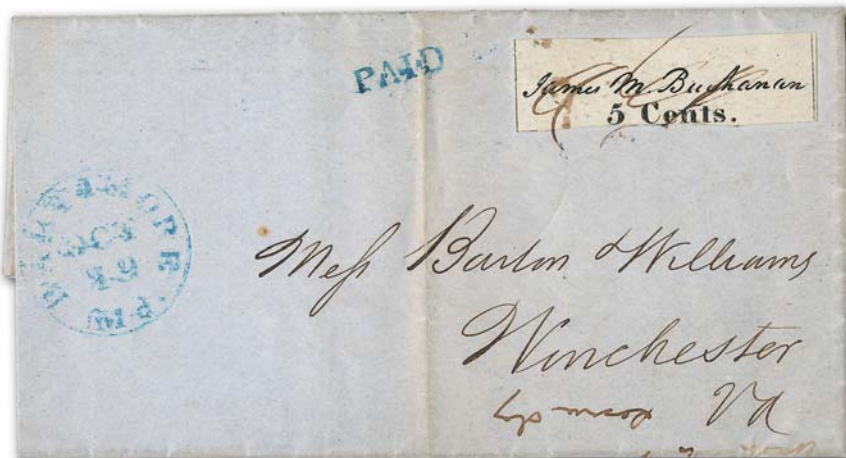 PAID
James M. Buchanan
5 Cents.
BALTIMORE Md.
OCT
Mess Barton & Williams
Winchester
Va